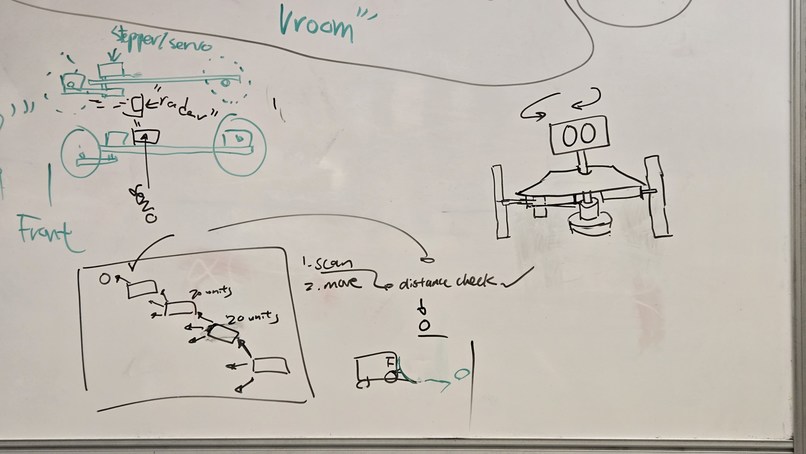 Vroom"
stepper/servo
"radar"
servo
Front
1. scan
2. move
distance check ✓
20 units
20 units
F